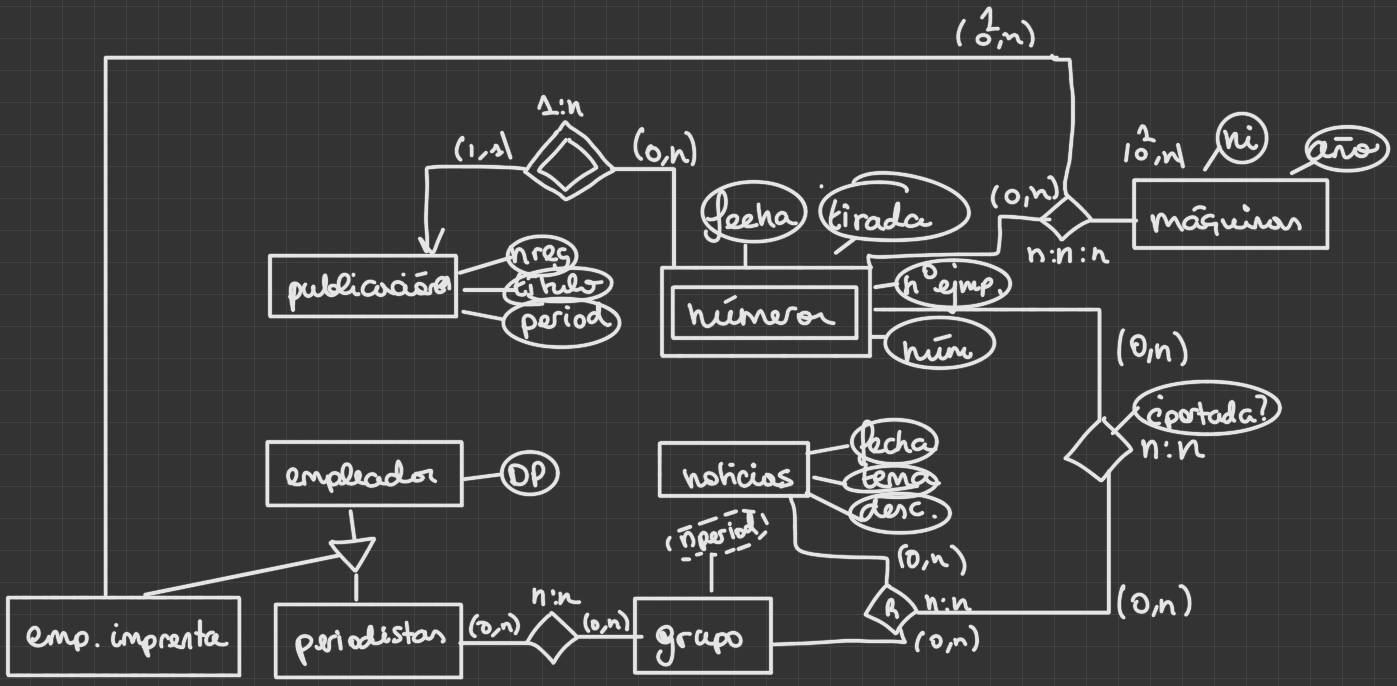 (0,n)
1
1:n
(1,1)
(0,n)
1
(0,n)
ni
año
fecha
tirada
(0,n)
máquinas
n:n:n
publicación
nreg
título
period
números
nº ejmp.
núm
(0,n)
¿portada?
n:n
empleador
DP
noticias
fecha
tema
desc.
ñperiod
(0,n)
n:n
R
n:n
(0,n)
emp. imprenta
periodistas
(0,n)
(0,n)
grupo
(0,n)